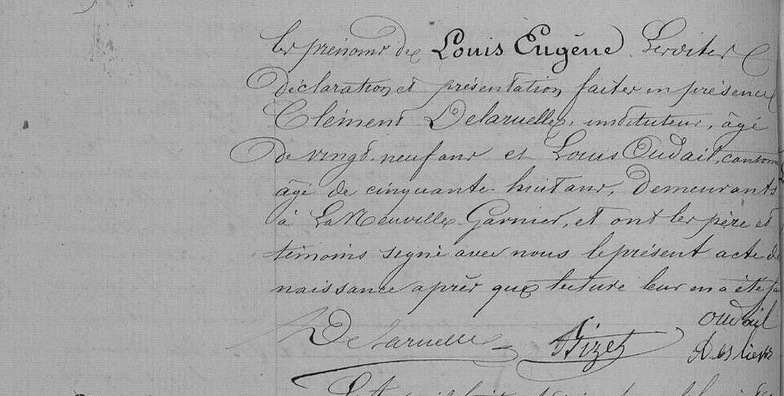 les prénoms de Louis Eugène. Lesdites
déclaration et présentation faites en présence
Clément Delaruelle, instituteur, âgé
de vingt-neuf ans et Louis Oudail, cantonn
âgé de cinquante-huit ans, demeurant
à LaNeuville-Garnier, et ont les père et
témoins signé avec nous le présent acte de
naissance après que lecture leur en a été fa
Oudail
Delaruelle Bizet